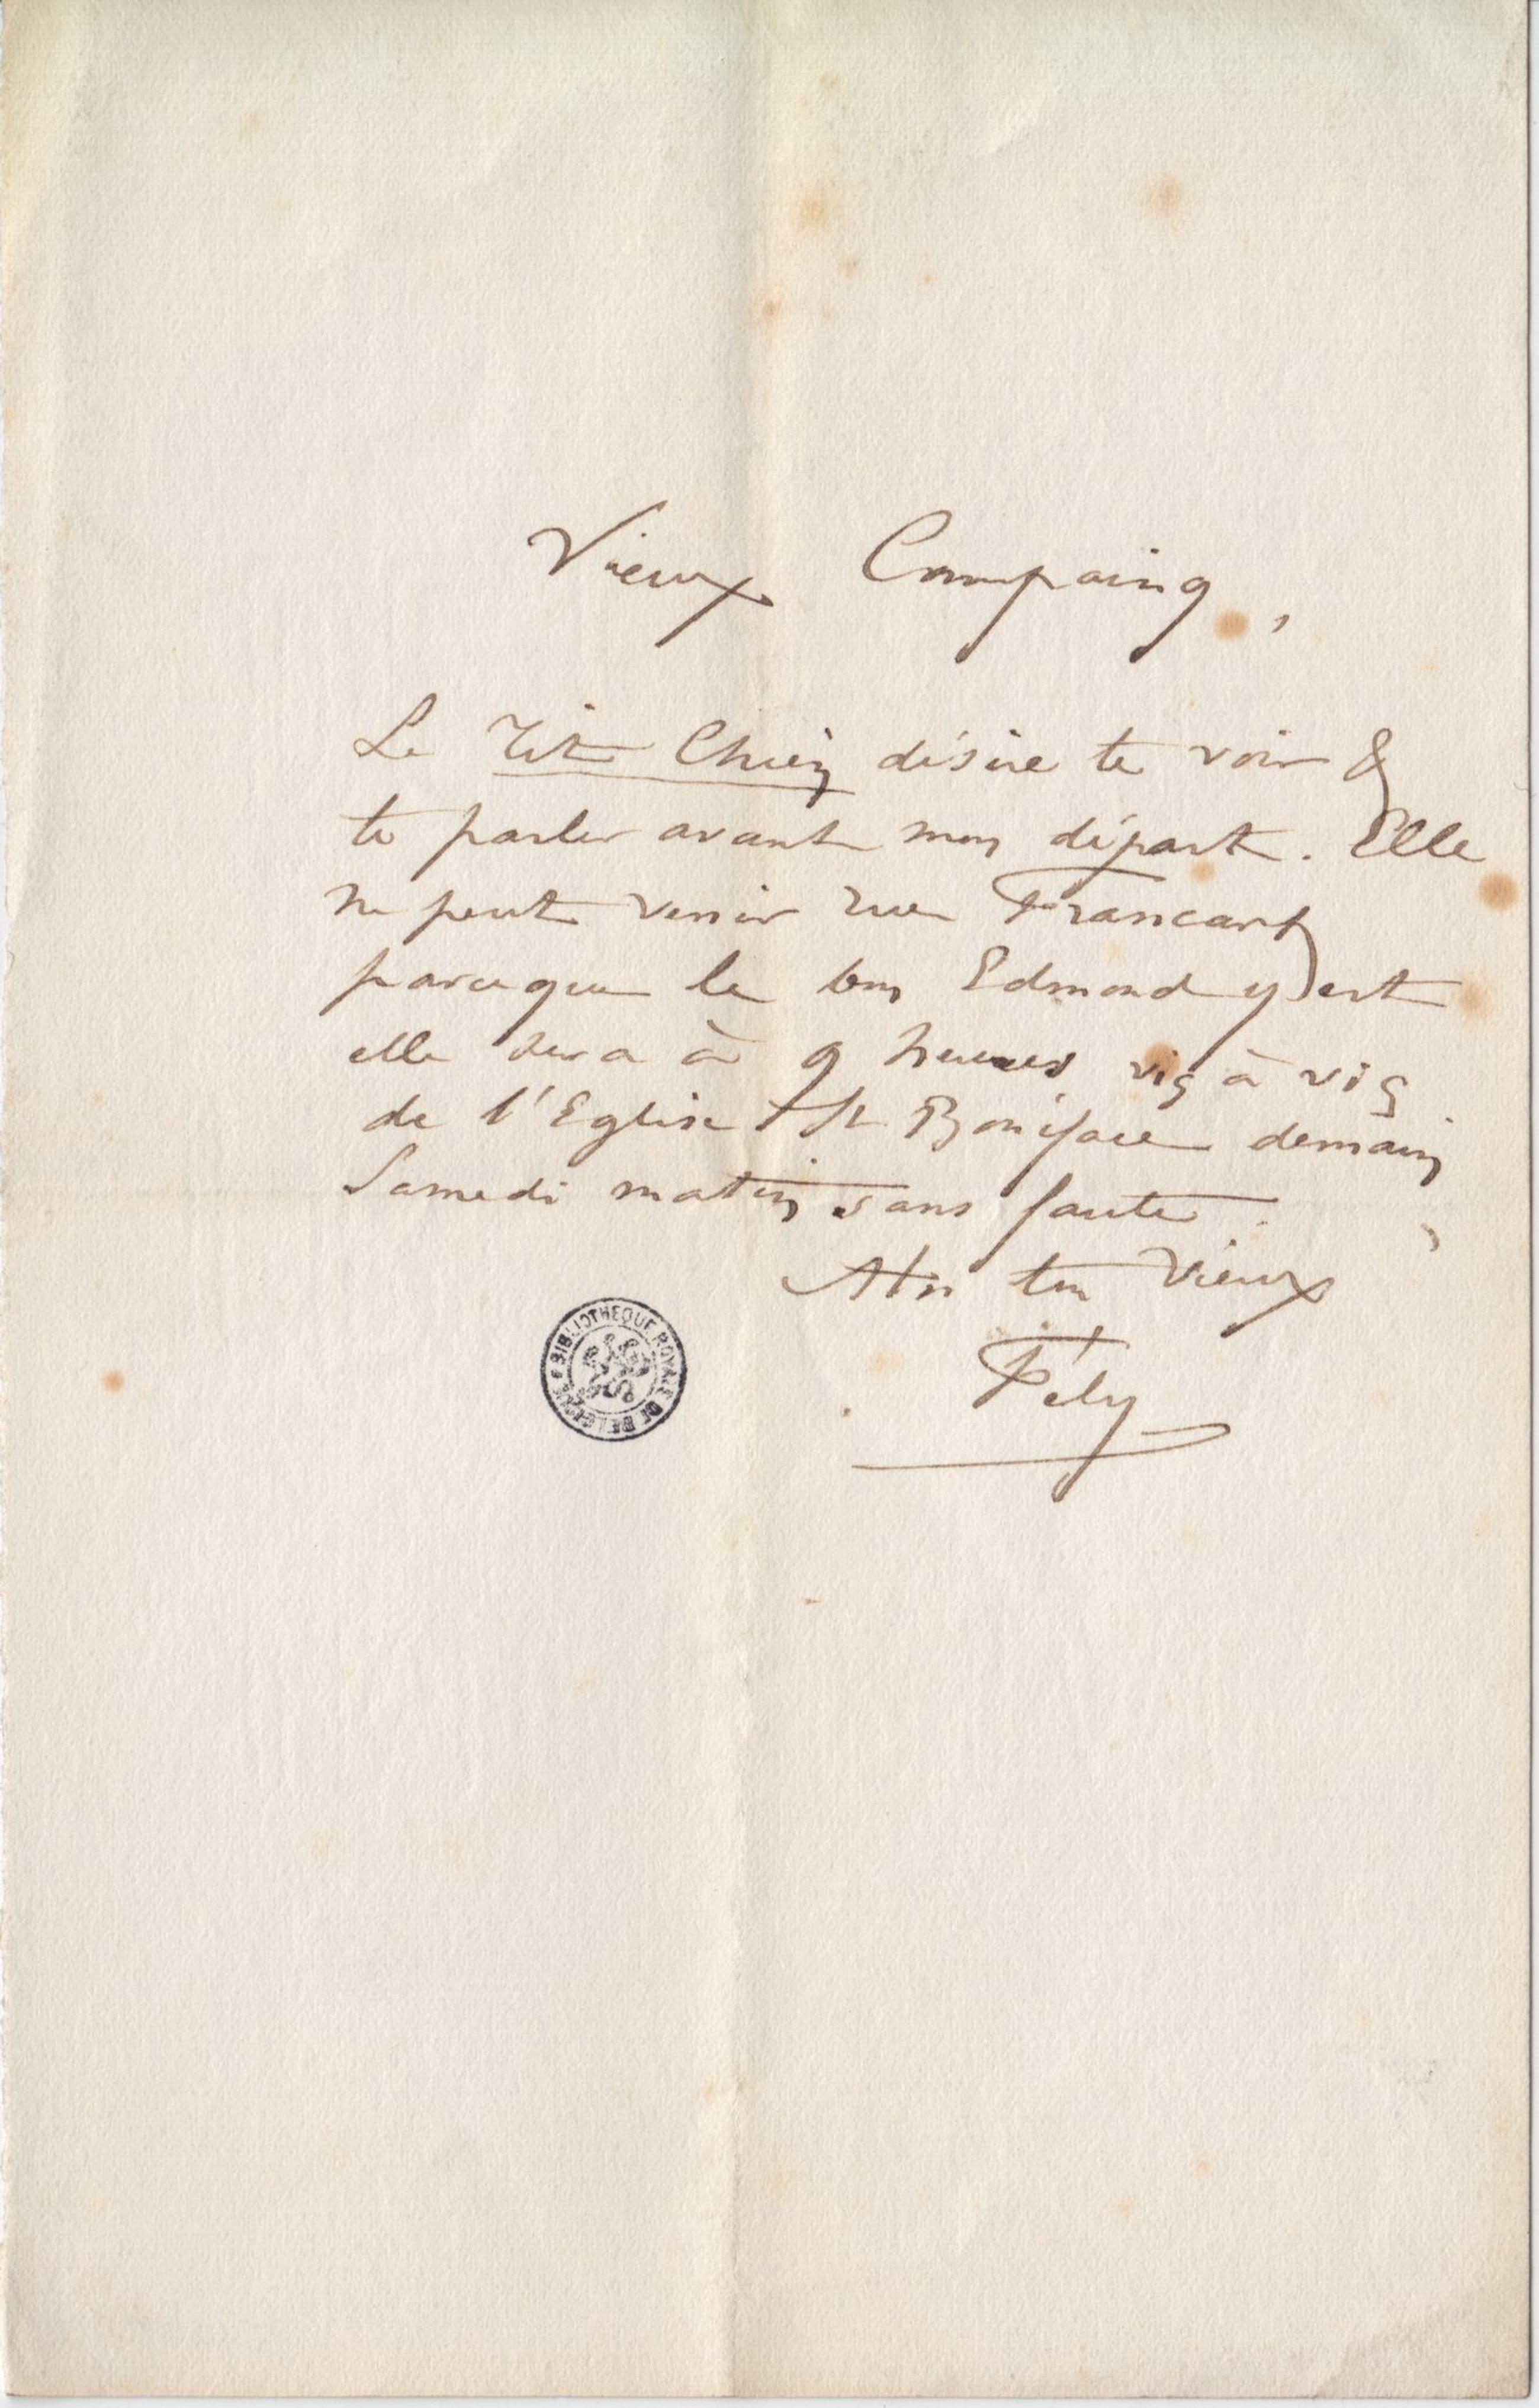 Vieux Compaing,
Le Tit Chien désire te voir &
te parler avant mon départ. Elle
ne peut venir rue Francart
parceque le bon Edmond y est
elle sera à 9 heures vis à vis
de l'Eglise St Boniface demain
Samedi matin sans faute.
ton Vieux
Fély
BIBLIOTHEQUE ROYALE DE BELGIQUE